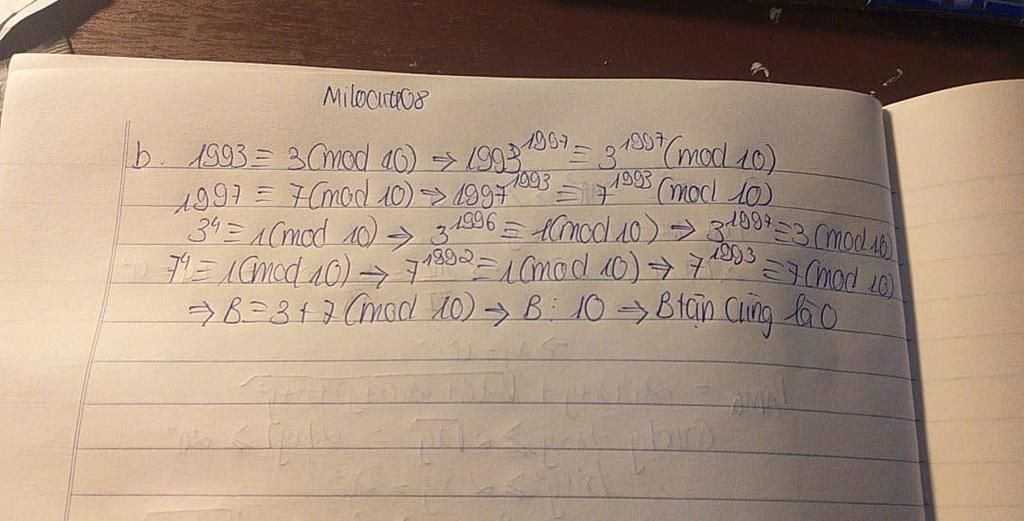 Milocuto08
b. 1993 ≡ 3 (mod 10) ⇒ 1993^1997 ≡ 3^1997 (mod 10)
1997 ≡ 7 (mod 10) ⇒ 1997^1993 ≡ 7^1993 (mod 10)
3^4 ≡ 1 (mod 10) → 3^1996 ≡ 1 (mod 10) ⇒ 3^1997 ≡ 3 (mod 10)
7^4 = 1 (mod 10) → 7^1992 = 1 (mod 10) ⇒ 7^1993 ≡ 7 (mod 10)
⇒ B = 3 + 7 (mod 10) → B ⋮ 10 ⇒ B tận cùng là 0